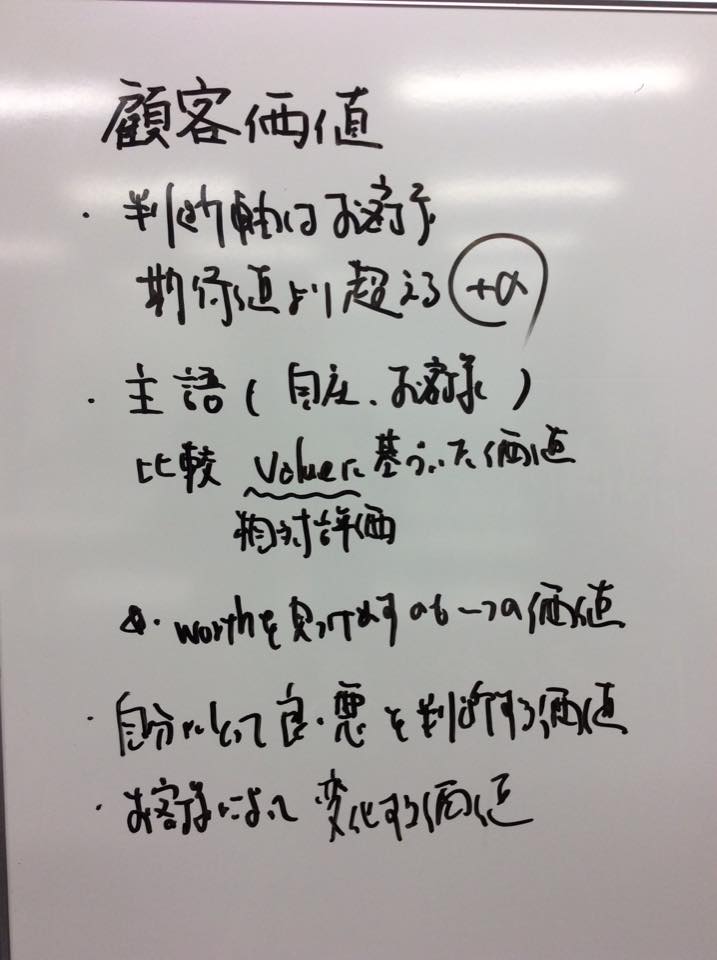 顧客価値
・判断軸はお客様
期待値より超える +α
・主語(自社、お客様)
比較 Valueに基づいた価値
相対評価
・worthを見つけ出すのも一つの価値
・自分にとって良・悪を判断する価値
・お客様によって変化する価値